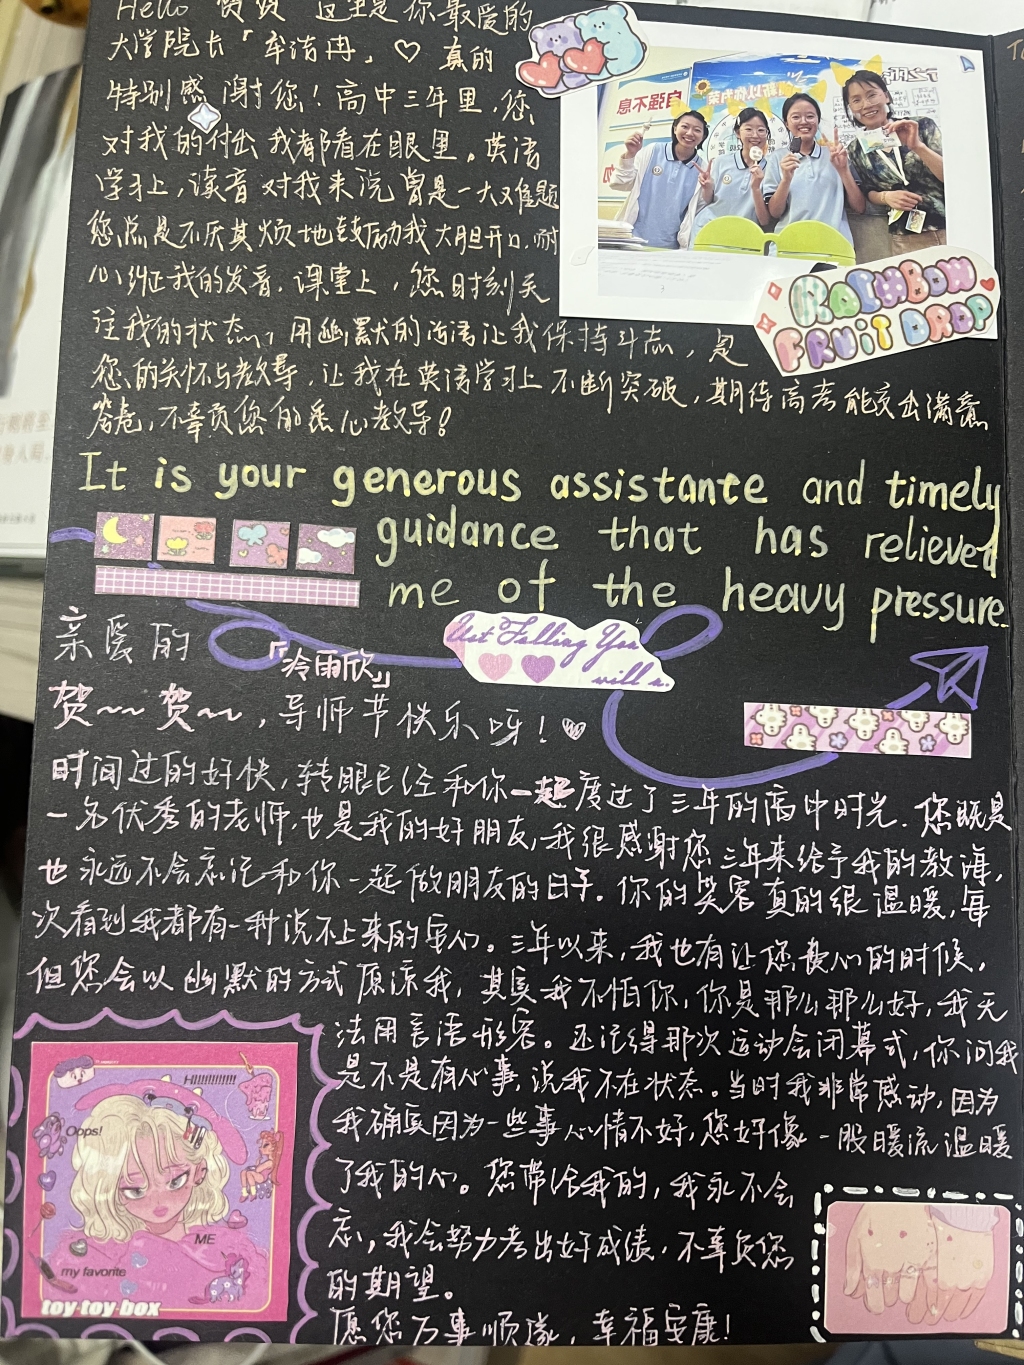 Hello 贺贺 这里是你最爱的
大学院长「车洁冉」♡ 真的
特别感谢您！高中三年里，您
对我的付出我都看在眼里。英语
学习上，读音对我来说曾是一大难题
您总是不厌其烦地鼓励我大胆开口，耐
心纠正我的发音。课堂上，您时刻关
注我的状态，用幽默的话语让我保持斗志，是
您的关怀与教导，让我在英语学习上不断突破，期待高考能交出满意
答卷，不辜负您的悉心教导！
自强不息
RAINBOW
FRUIT DROP
It is your generous assistance and timely
guidance that has relieved
me of the heavy pressure.
亲爱的
「冷雨欣」
贺~~贺~~，导师节快乐呀！♡
Just Falling You
will
时间过的好快，转眼已经和你一起度过了三年的高中时光．您既是
一名优秀的老师，也是我的好朋友，我很感谢您三年来给予我的教诲，
也永远不会忘记和你一起做朋友的日子。你的笑容真的很温暖，每
次看到我都有一种说不上来的安心。三年以来，我也有让您费心的时候，
但您会以幽默的方式原谅我，其实我不怕你，你是那么那么好，我无
法用言语形容。还记得那次运动会闭幕式，你问我
是不是有心事，说我不在状态。当时我非常感动，因为
我确实因为一些事心情不好，您好像一股暖流温暖
了我的心。您带给我的，我永不会
忘，我会努力考出好成绩，不辜负您
的期望。
愿您万事顺遂，幸福安康！
HI!!!!!!!!!!!!
Oops!
ME
my favorite
toy·toy·box